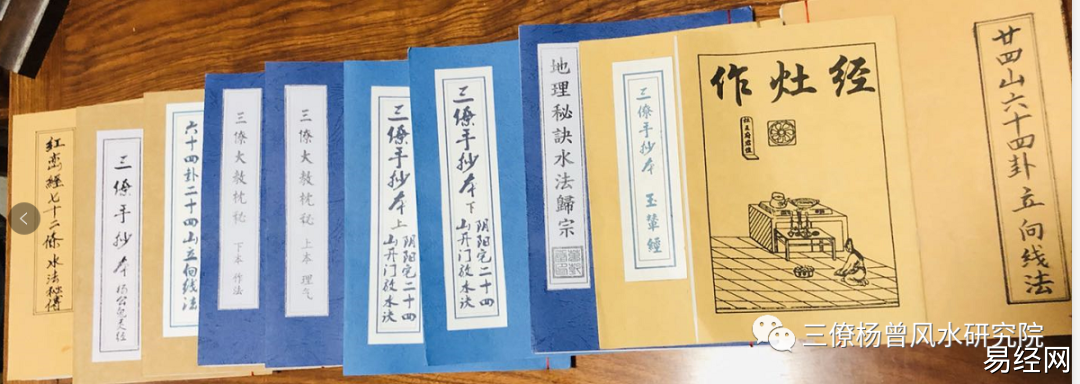 红峦经七十二條水法秘傳
三僚手抄本
杨公包灵经
六十四卦二十四山立向线法
三僚大教枕秘
下本 作法
三僚大教枕秘
上本 理气
三僚手抄本 上
阴阳宅二十四
山开门放水诀
三僚手抄本 下
阴阳宅二十四
山开门放水诀
地理秘訣水法歸宗
三僚手抄本 玉輦經
作灶经
廿四山六十四卦立向线法
三僚杨曾风水研究院
易经网